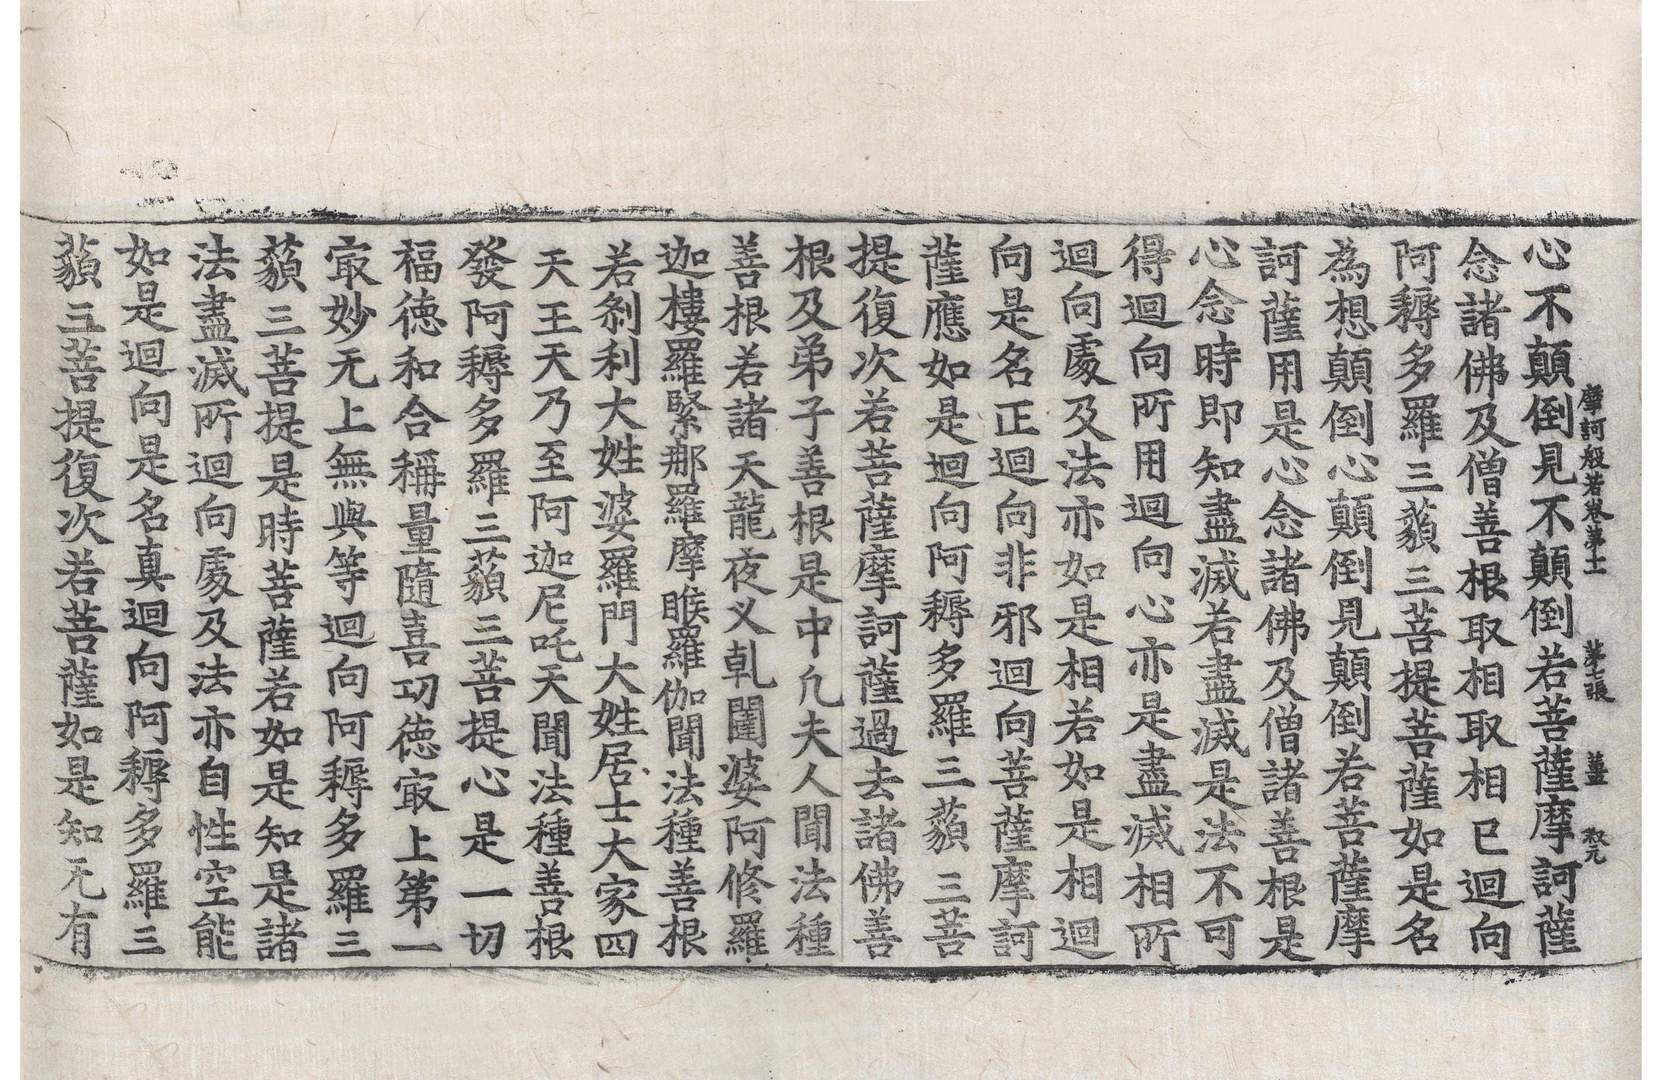 摩訶般若卷第十一 第七張 薑 叔元
心不顛倒見不顛倒若菩薩摩訶薩
念諸佛及僧善根取相取相已迴向
阿耨多羅三藐三菩提菩薩如是名
為想顛倒心顛倒見顛倒若菩薩摩
訶薩用是心念諸佛及僧諸善根是
心念時即知盡滅若盡滅是法不可
得迴向所用迴向心亦是盡滅相所
迴向處及法亦如是相若如是相迴
向是名正迴向非邪迴向菩薩摩訶
薩應如是迴向阿耨多羅三藐三菩
提復次若菩薩摩訶薩過去諸佛善
根及弟子善根是中凢夫人聞法種
善根若諸天龍夜义乹闥婆阿修羅
迦樓羅緊那羅摩睺羅伽聞法種善根
若剎利大姓婆羅門大姓居士大家四
天王天乃至阿迦尼吒天聞法種善根
發阿耨多羅三藐三菩提心是一切
福德和合稱量隨喜功德㝡上第一
㝡妙无上無與等迴向阿耨多羅三
藐三菩提是時菩薩若如是知是諸
法盡滅所迴向處及法亦自性空能
如是迴向是名真迴向阿耨多羅三
藐三菩提復次若菩薩如是知无有